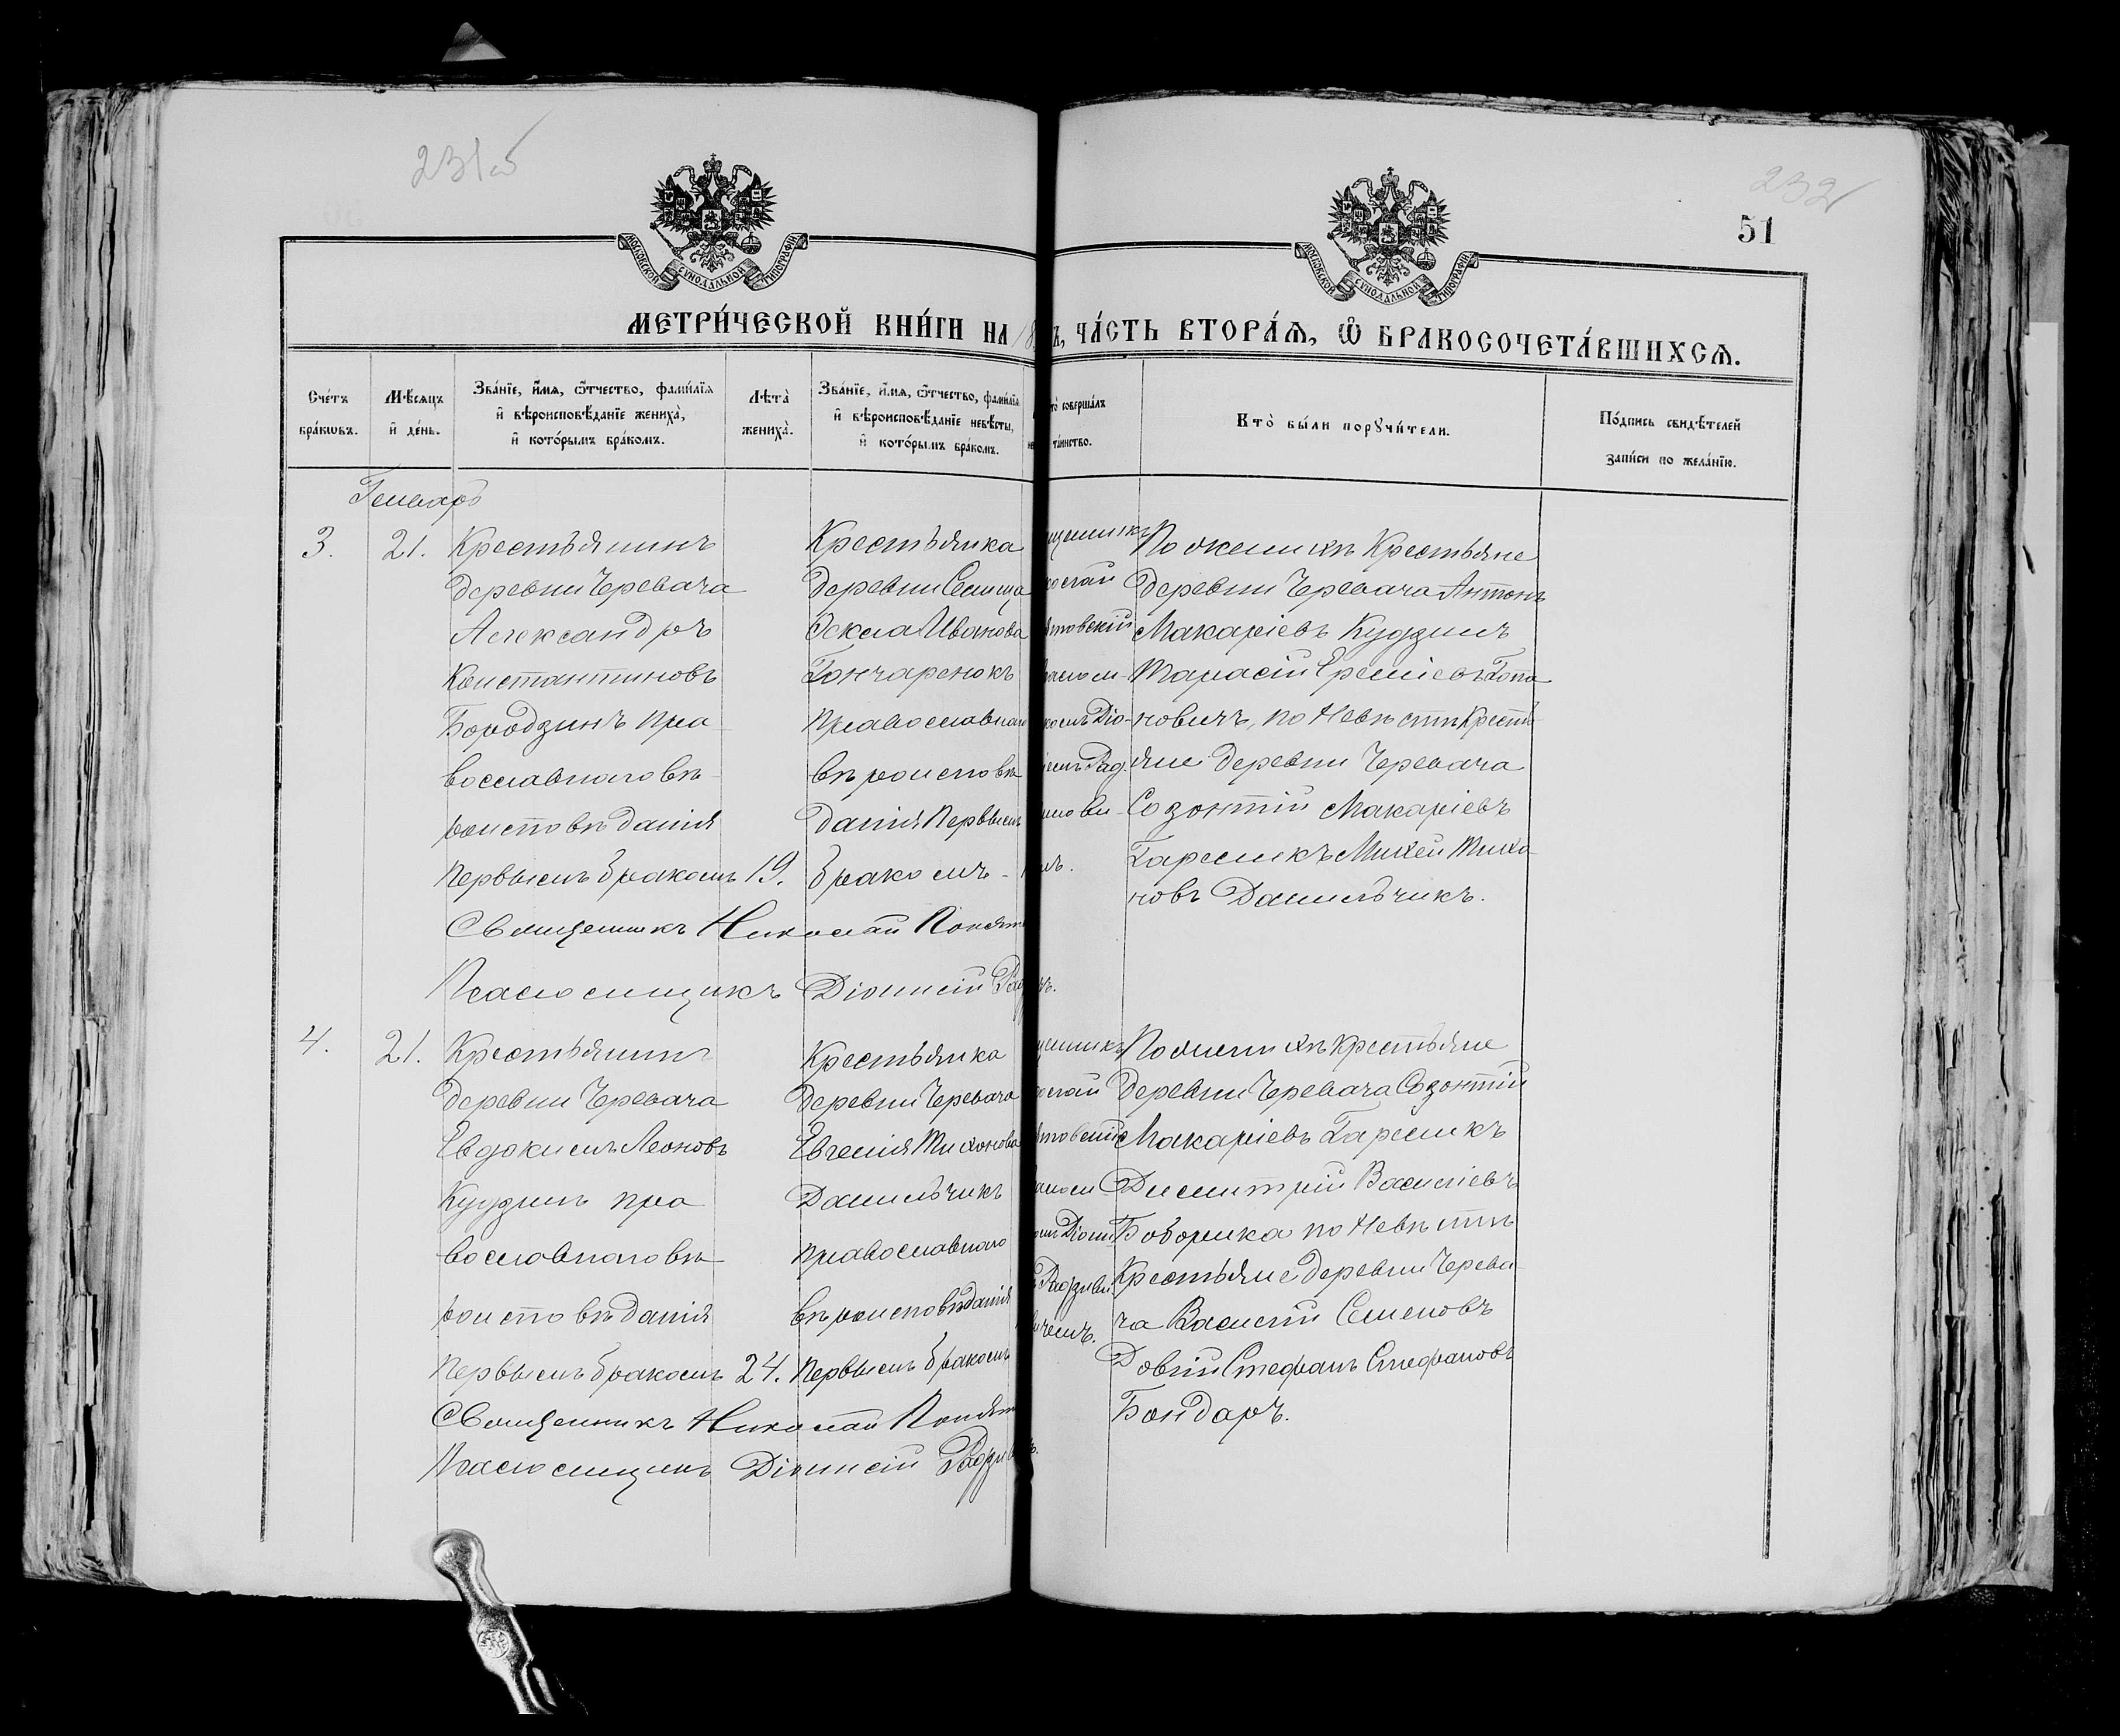 231 об
232
51
МОСКОВСКОЙ СУНОДАЛЬНОЙ ТИПОГРАФІИ
МОСКОВСКОЙ СУНОДАЛЬНОЙ ТИПОГРАФІИ
МЕТРИ́ЧЕСКОЙ КНИ́ГИ НА 18
ЧА́СТЬ ВТОРА́Ѧ, Ѽ БРАКОСОЧЕТА́ВШИХСѦ.
Сче́тъ бра́кѡвъ.
Мѣ́сѧцъ и҆ де́нь.
Зва́нїе, и҆́мѧ, ѻ҆́тчество, фами́лїѧ
и҆ вѣроисповѣ́данїе жениха̀,
и҆ кото́рымъ бра́комъ.
Лѣта̀ жениха̀.
Зва́нїе, и҆́мѧ, ѻ҆́тчество, фами́лїѧ
и҆ вѣроисповѣ́данїе невѣ́сты,
и҆ кото́рымъ бра́комъ.
то̀ соверша́лъ
та́инство.
Кто̀ бы́ли порꙋчи́тели.
По́дпись свидѣ́телей
за́писи по жела́нїю.
Генварь
3.
21.
Крестьянинъ
деревни Черевача
Александръ
Константиновъ
Бородзинъ пра
вославнаго вѣ
роисповѣданія
первымъ бракомъ
19.
Крестьянка
деревни Селища
Ѳекла Иванова
Гончаренокъ
православнаго
вѣроисповѣ
данія первымъ
бракомъ
щенникъ
колай
ятовскій
псалом
комъ Діо
емъ Рад
нови
мъ.
По женихѣ Крестьяне
деревни Черевача Антонъ
Макаріевъ Кудзинъ
Тарасій Ереміевъ Гопа
новичъ, по Невѣстѣ Кресть
яне деревни Черевача
Созонтій Макаріевъ
Гарешкъ Михей Тихо
новъ Данильчикъ.
Священникъ Николай Понят
Псаломщикъ Діонисій Рад
4.
21.
Крестьянинъ
деревни Черевача
Евдокимъ Леоновъ
Кудзинъ пра
вославнаго вѣ
роисповѣданія
первымъ бракомъ
24.
Крестьянка
деревни Черевача
Евгенія Тихонова
Данильчикъ
православнаго
вѣроисповѣданія
первымъ бракомъ
щенникъ
колай
ятовскій
псалом
комъ Діони
Радзиви
чемъ.
По женихѣ Крестьяне
деревни Черевача Созонтій
Макаріевъ Гарешкъ
Димитрій Василіевъ
Боборика по Невѣстѣ
Крестьяне деревни Черева
ча Василій Семеновъ
Довгій Стефанъ Стефановъ
Бондаръ.
Священникъ Николай Понят
Псаломщикъ Діонисій Радзив